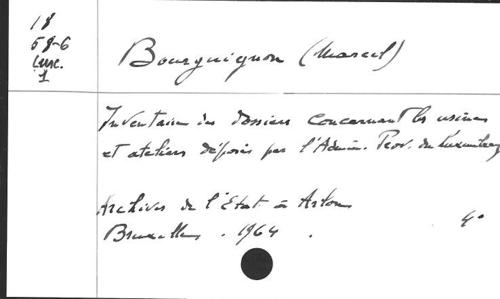 18
58-6
Luxe.
1
Bourguignon (Marcel)
Inventaire des dossiers concernant les usines
et ateliers déposés par l'Admin. Prov. du Luxembourg
Archives de l'Etat à Arlon
Bruxelles . 1964 . 4°